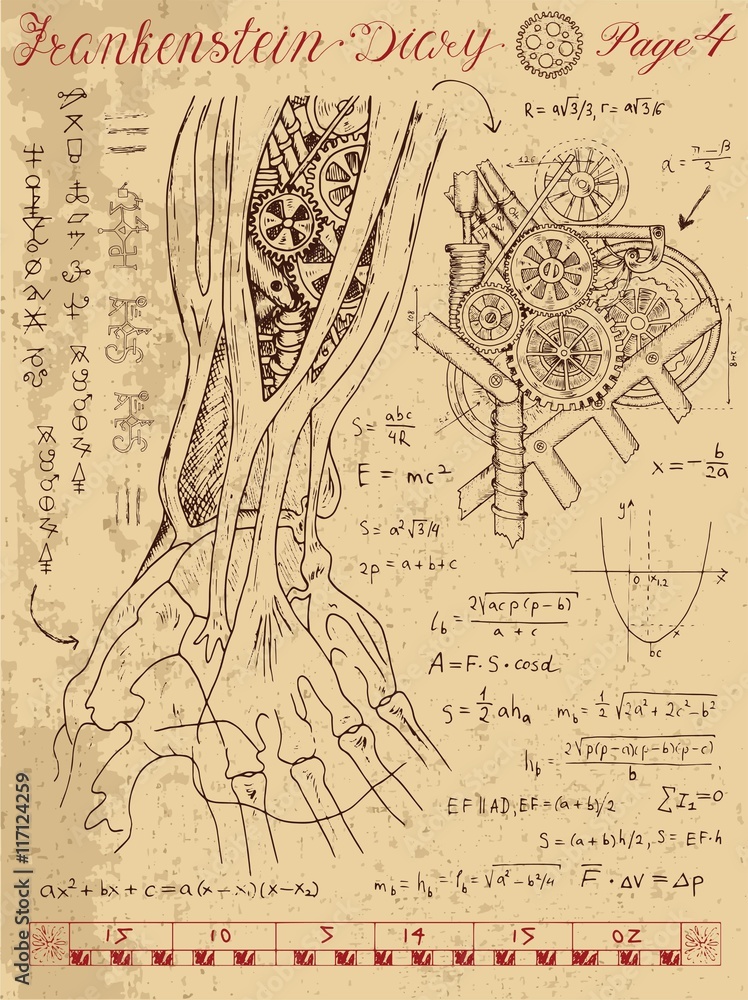 Frankenstein Diary
Page 4
R = a√3/3, r = a√3/6
α = (π - β)/2
126
108
248
S = abc/4R
E = mc²
x = - b/2a
S = a²√3/4
2p = a + b + c
y
0 x₁,₂ x
x
bc
l_b = 2√acp(p-b) / a + c
A = F · S · cosd
S = 1/2 ah_a
m_b = 1/2 √2a² + 2c² - b²
h_b = 2√p(p-a)(p-b)(p-c) / b
EF || AD, EF = (a+b)/2
∑I₁=0
S = (a+b)h/2, S = EF·h
ax² + bx + c = a(x - x₁)(x - x₂)
m_b = h_b = l_b = √a² - b²/4
F · ΔV = Δp
15 10 5 14 15 02
Adobe Stock | #117124259